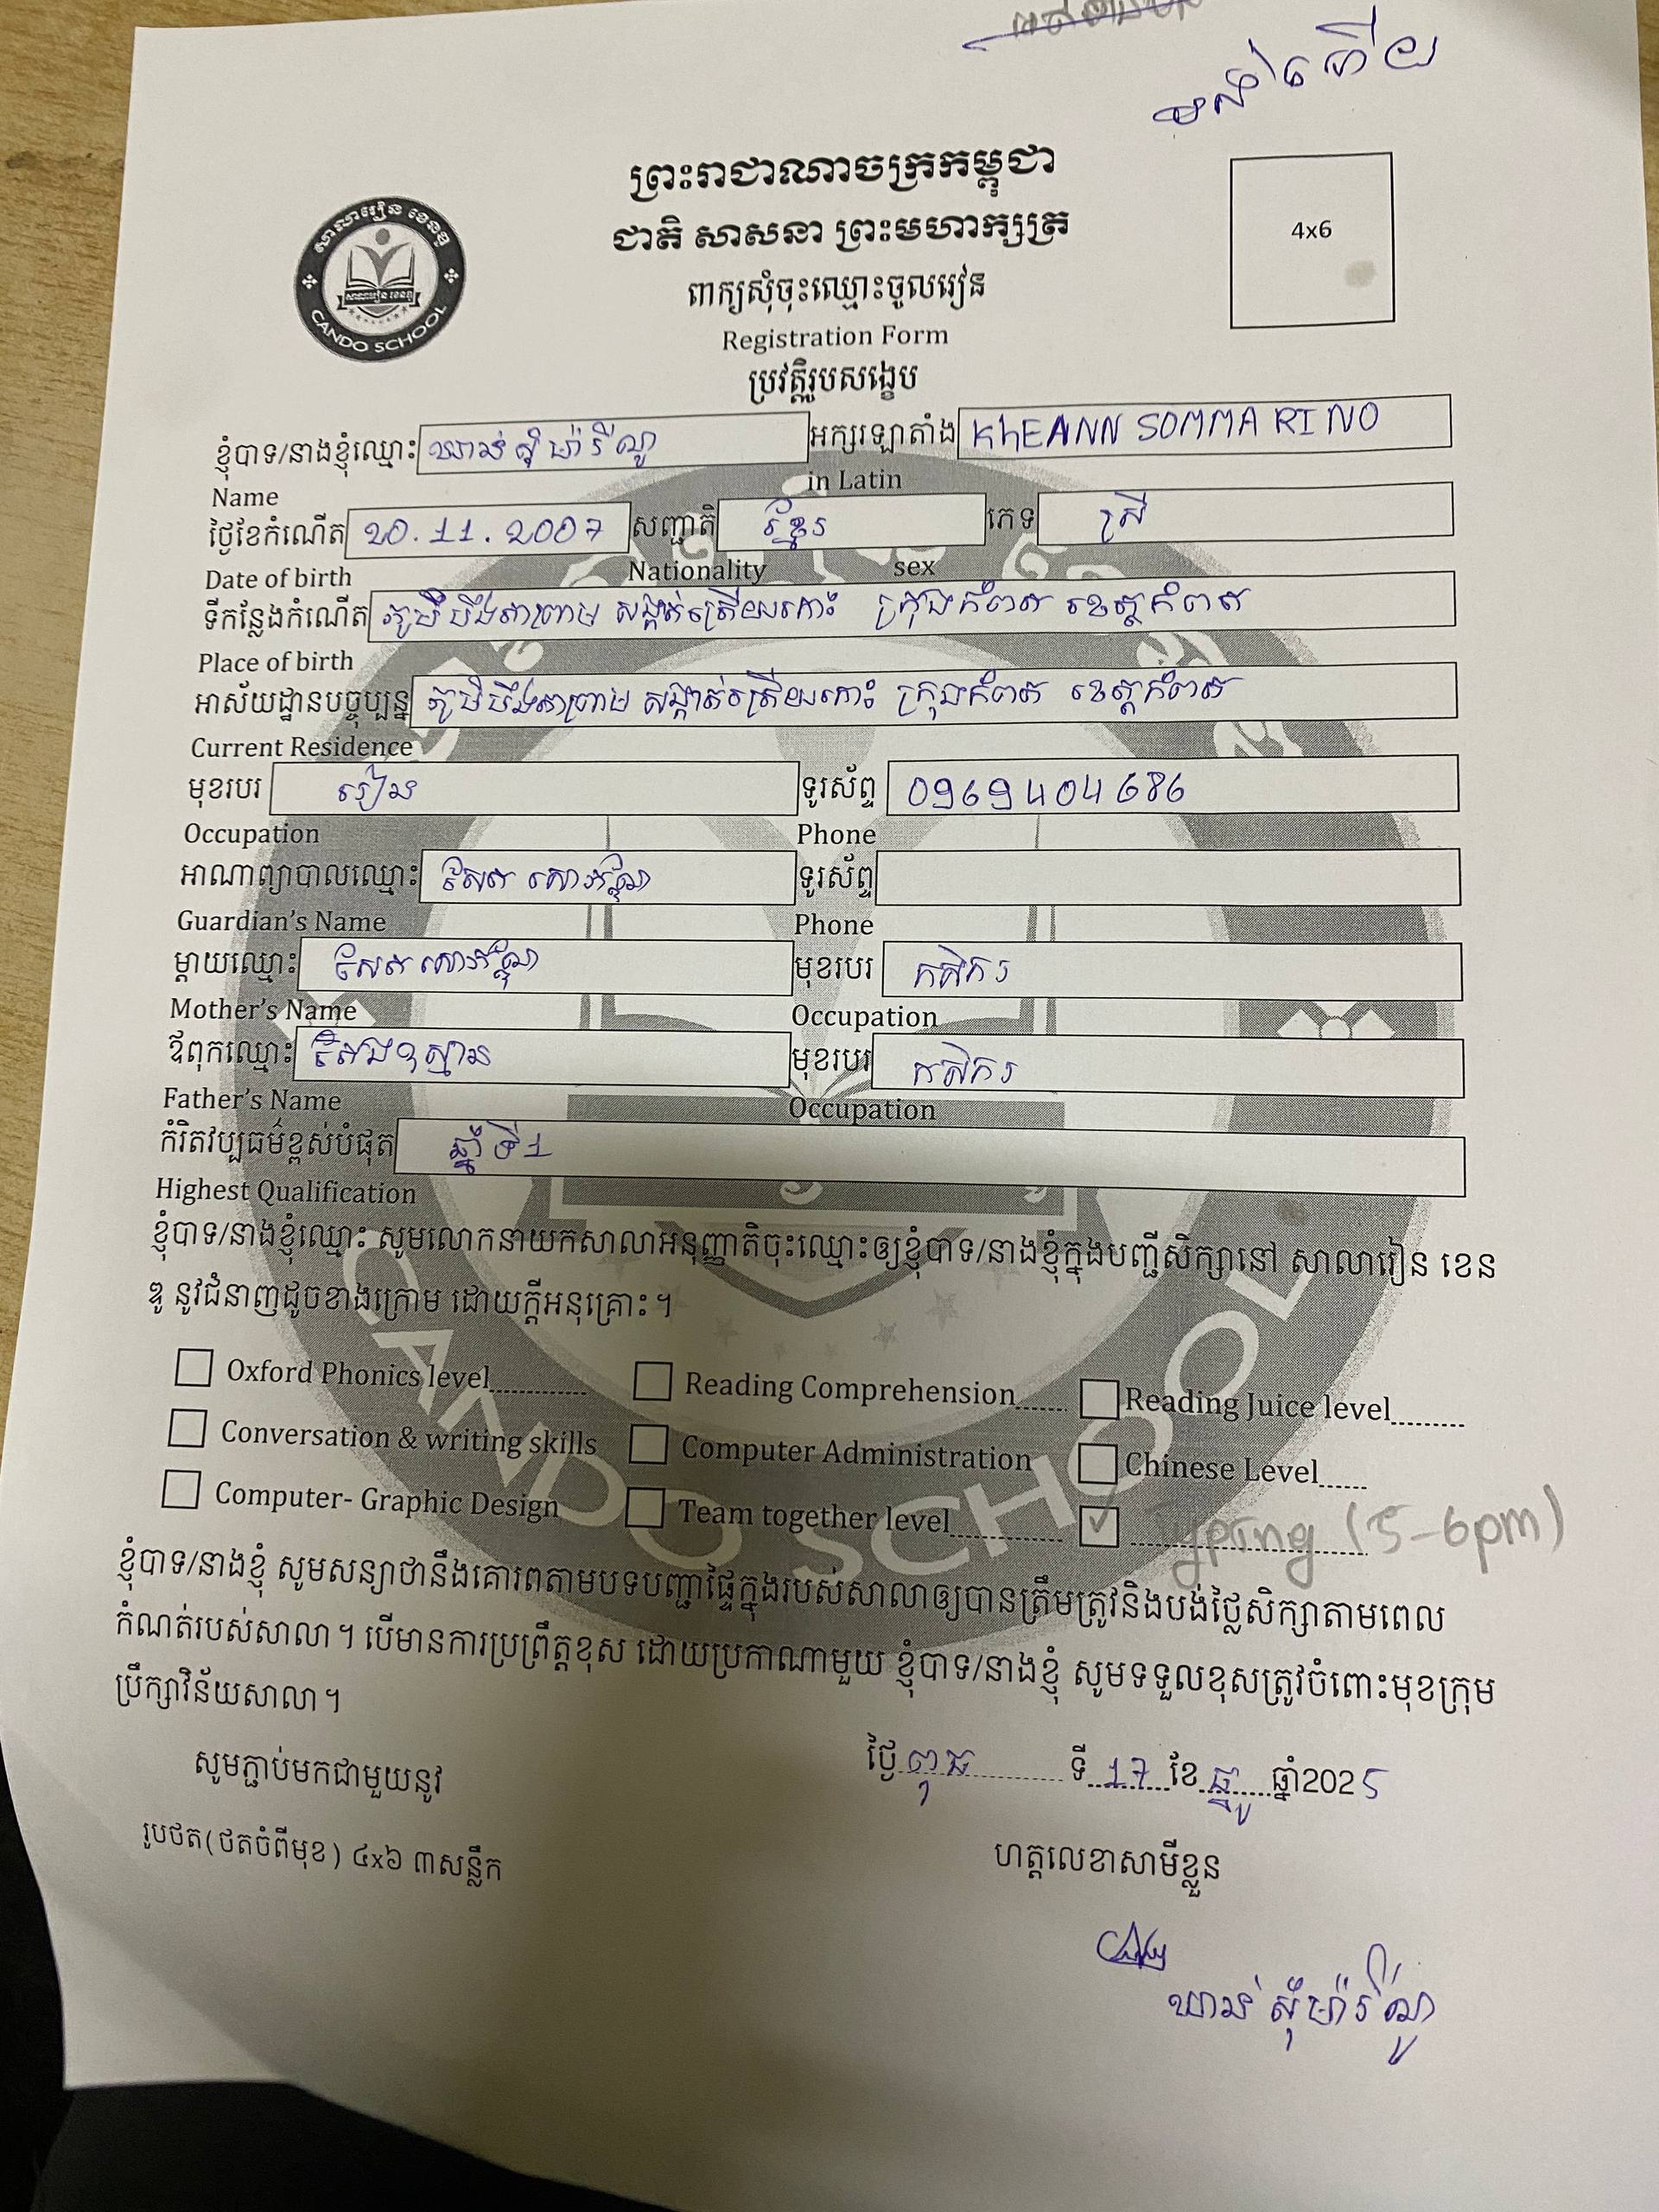 ព្រះរាជាណាចក្រកម្ពុជា
ជាតិ សាសនា ព្រះមហាក្សត្រ
ពាក្យសុំចុះឈ្មោះចូលរៀន
Registration Form
ប្រវត្តិរូបសង្ខេប
សាលារៀន ខេនឌូ
CANDO SCHOOL
4x6
ខ្ញុំបាទ/នាងខ្ញុំឈ្មោះ ឃាន់ ស៊ុម៉ារីណូ អក្សរឡាតាំង KhEANN SOMMARINO
Name in Latin
ថ្ងៃខែកំណើត 20.11.2007 សញ្ជាតិ ខ្មែរ ភេទ ស្រី
Date of birth Nationality sex
ទីកន្លែងកំណើត ភូមិបឹងតាព្រាម សង្កាត់ត្រើយកោះ ក្រុងកំពត ខេត្តកំពត
Place of birth
អាស័យដ្ឋានបច្ចុប្បន្ន ភូមិបឹងតាព្រាម សង្កាត់ត្រើយកោះ ក្រុងកំពត ខេត្តកំពត
Current Residence
មុខរបរ រៀន ទូរស័ព្ទ 0969404686
Occupation Phone
អាណាព្យាបាលឈ្មោះ ទូរស័ព្ទ
Guardian's Name Phone
ម្តាយឈ្មោះ មុខរបរ កសិករ
Mother's Name Occupation
ឪពុកឈ្មោះ មុខរបរ កសិករ
Father's Name Occupation
កំរិតវប្បធម៌ខ្ពស់បំផុត ឆ្នាំទី1
Highest Qualification
ខ្ញុំបាទ/នាងខ្ញុំឈ្មោះ សូមលោកនាយកសាលាអនុញ្ញាតិចុះឈ្មោះឲ្យខ្ញុំបាទ/នាងខ្ញុំក្នុងបញ្ជីសិក្សានៅ សាលារៀន ខេន
ឌូ នូវជំនាញដូចខាងក្រោម ដោយក្តីអនុគ្រោះ។
Oxford Phonics level Reading Comprehension Reading Juice level
Conversation & writing skills Computer Administration Chinese Level
Computer- Graphic Design Team together level Typing (5-6pm)
ខ្ញុំបាទ/នាងខ្ញុំ សូមសន្យាថានឹងគោរពតាមបទបញ្ជាផ្ទៃក្នុងរបស់សាលាឲ្យបានត្រឹមត្រូវនិងបង់ថ្លៃសិក្សាតាមពេល
កំណត់របស់សាលា។ បើមានការប្រព្រឹត្តខុស ដោយប្រការណាមួយ ខ្ញុំបាទ/នាងខ្ញុំ សូមទទួលខុសត្រូវចំពោះមុខក្រុម
ប្រឹក្សាវិន័យសាលា។
សូមភ្ជាប់មកជាមួយនូវ
ថ្ងៃ ពុធ ទី 17 ខែ ធ្នូ ឆ្នាំ2025
រូបថត(ថតចំពីមុខ) ៤x៦ ៣សន្លឹក
ហត្តលេខាសាមីខ្លួន
ឃាន់ ស៊ុម៉ារីណូ